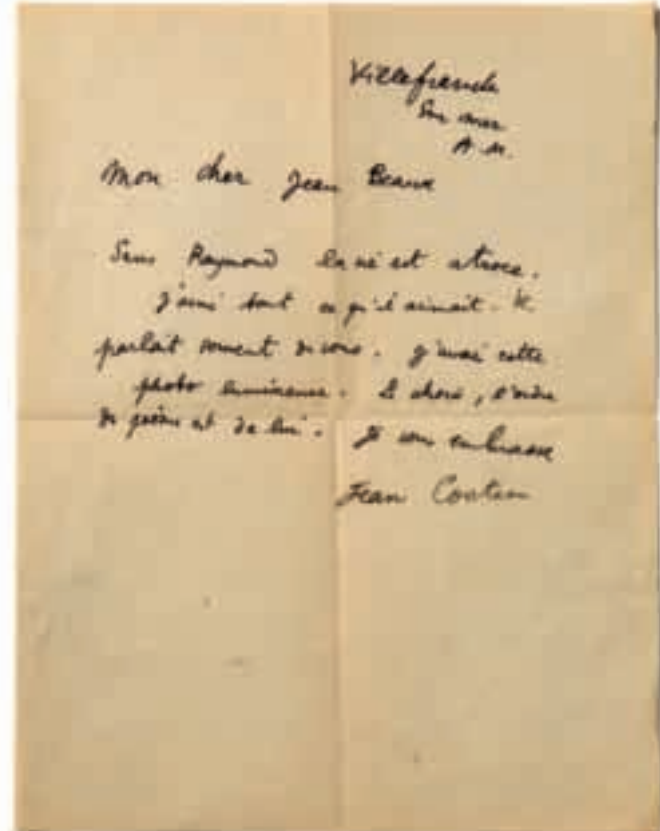 Villefranche
Sur mer
A. M.
Mon cher Jean Beaux
Sans Raymond la vie est atroce.
J'aime tout ce qu'il aimait. Il
parlait souvent de vous. J'avais cette
photo lumineuse. Le choix, l'ordre
de poèmes et de lui. Je vous embrasse
Jean Cocteau